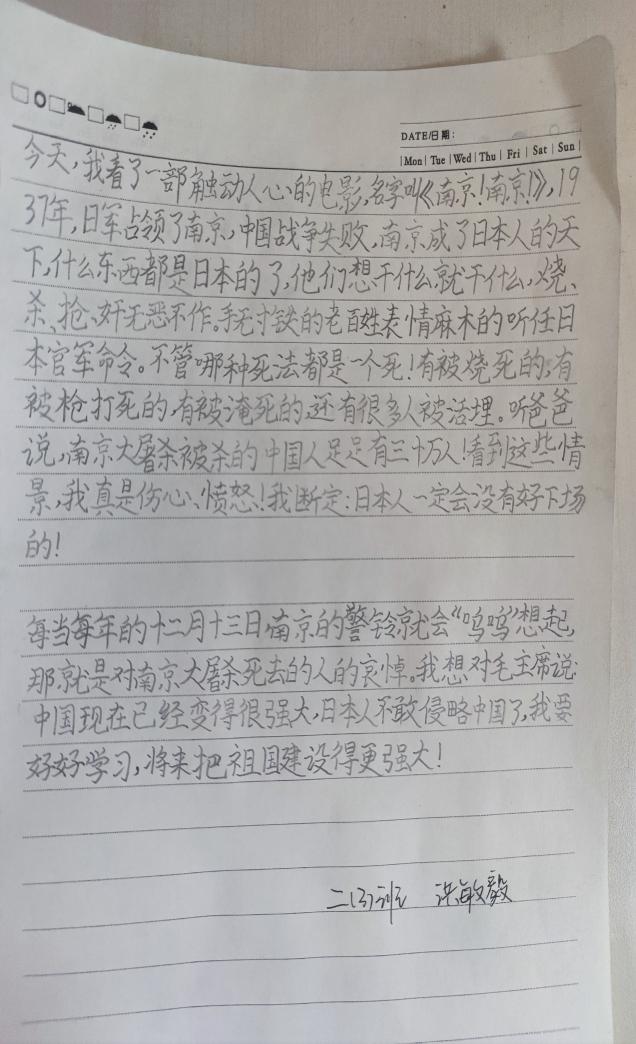 DATE/日期：
Mon Tue Wed Thu Fri Sat Sun
今天，我看了一部触动人心的电影，名字叫《南京！南京！》，19
37年，日军占领了南京，中国战争失败，南京成了日本人的天
下，什么东西都是日本的了，他们想干什么就干什么，烧、
杀、抢、奸无恶不作。手无寸铁的老百姓表情麻木的听任日
本官军命令。不管哪种死法都是一个死！有被烧死的，有
被枪打死的，有被淹死的，还有很多人被活埋。听爸爸
说，南京大屠杀被杀的中国人足足有三十万人！看到这些情
景，我真是伤心、愤怒！我断定：日本人一定会没有好下场
的！
每当每年的十二月十三日，南京的警铃就会“呜呜”想起，
那就是对南京大屠杀死去的人的哀悼。我想对毛主席说：
中国现在已经变得很强大，日本人不敢侵略中国了，我要
好好学习，将来把祖国建设得更强大！
二（3）班 洪敏毅